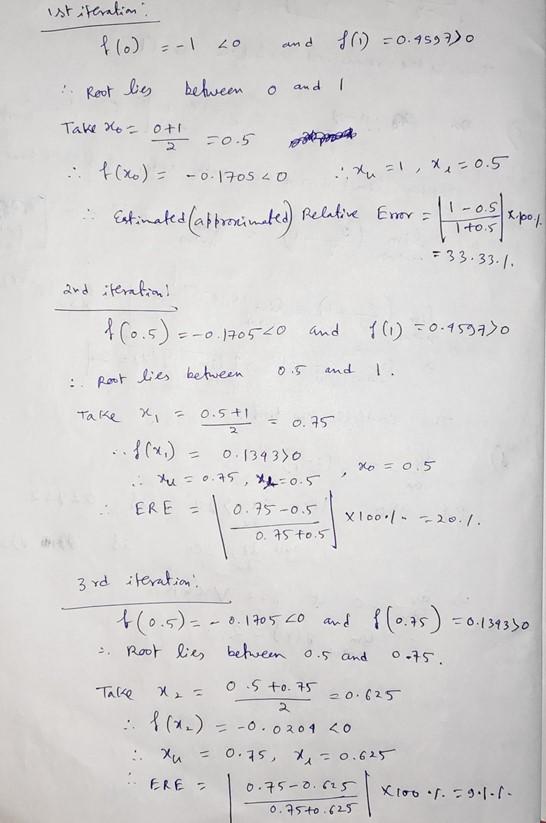 1st iteration:
f(0) = -1 <0 and f(1) = 0.4597>0
∴ Root lies between 0 and 1
Take x₀ = (0+1)/2 = 0.5
∴ f(x₀) = -0.1705<0 ∴ xᵤ = 1, xₗ = 0.5
∴ Estimated (approximated) Relative Error = |(1-0.5)/(1+0.5)| X 100%
= 33.33%.
2nd iteration:
f(0.5) = -0.1705<0 and f(1) = 0.4597>0
∴ Root lies between 0.5 and 1.
Take x₁ = (0.5+1)/2 = 0.75
∴ f(x₁) = 0.1343>0
∴ xᵤ = 0.75, xₗ = 0.5, x₀ = 0.5
∴ ERE = |(0.75-0.5)/(0.75+0.5)| X100%. = 20%.
3rd iteration:
f(0.5) = -0.1705<0 and f(0.75) = 0.1343>0
∴ Root lies between 0.5 and 0.75.
Take x₂ = (0.5+0.75)/2 = 0.625
∴ f(x₂) = -0.0204 <0
∴ xᵤ = 0.75, xₗ = 0.625
∴ ERE = |(0.75-0.625)/(0.75+0.625)| X100 %. = 9%.